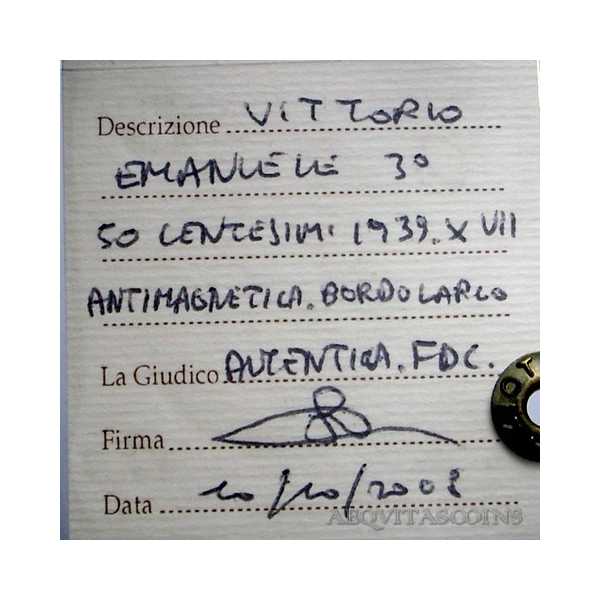 Descrizione VITTORIO
EMANUELE 3º
50 CENTESIMI 1939. XVII
ANTIMAGNETICA. BORDO LARGO
La Giudico AUTENTICA. FDC.
Firma
Data 10/10/2008
AEQVITASCOINS